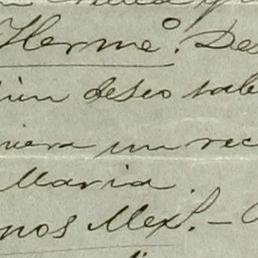 Hermº. Des
ien deseo sabe
viera un rec
Maria.
nos Mexˡ. - C